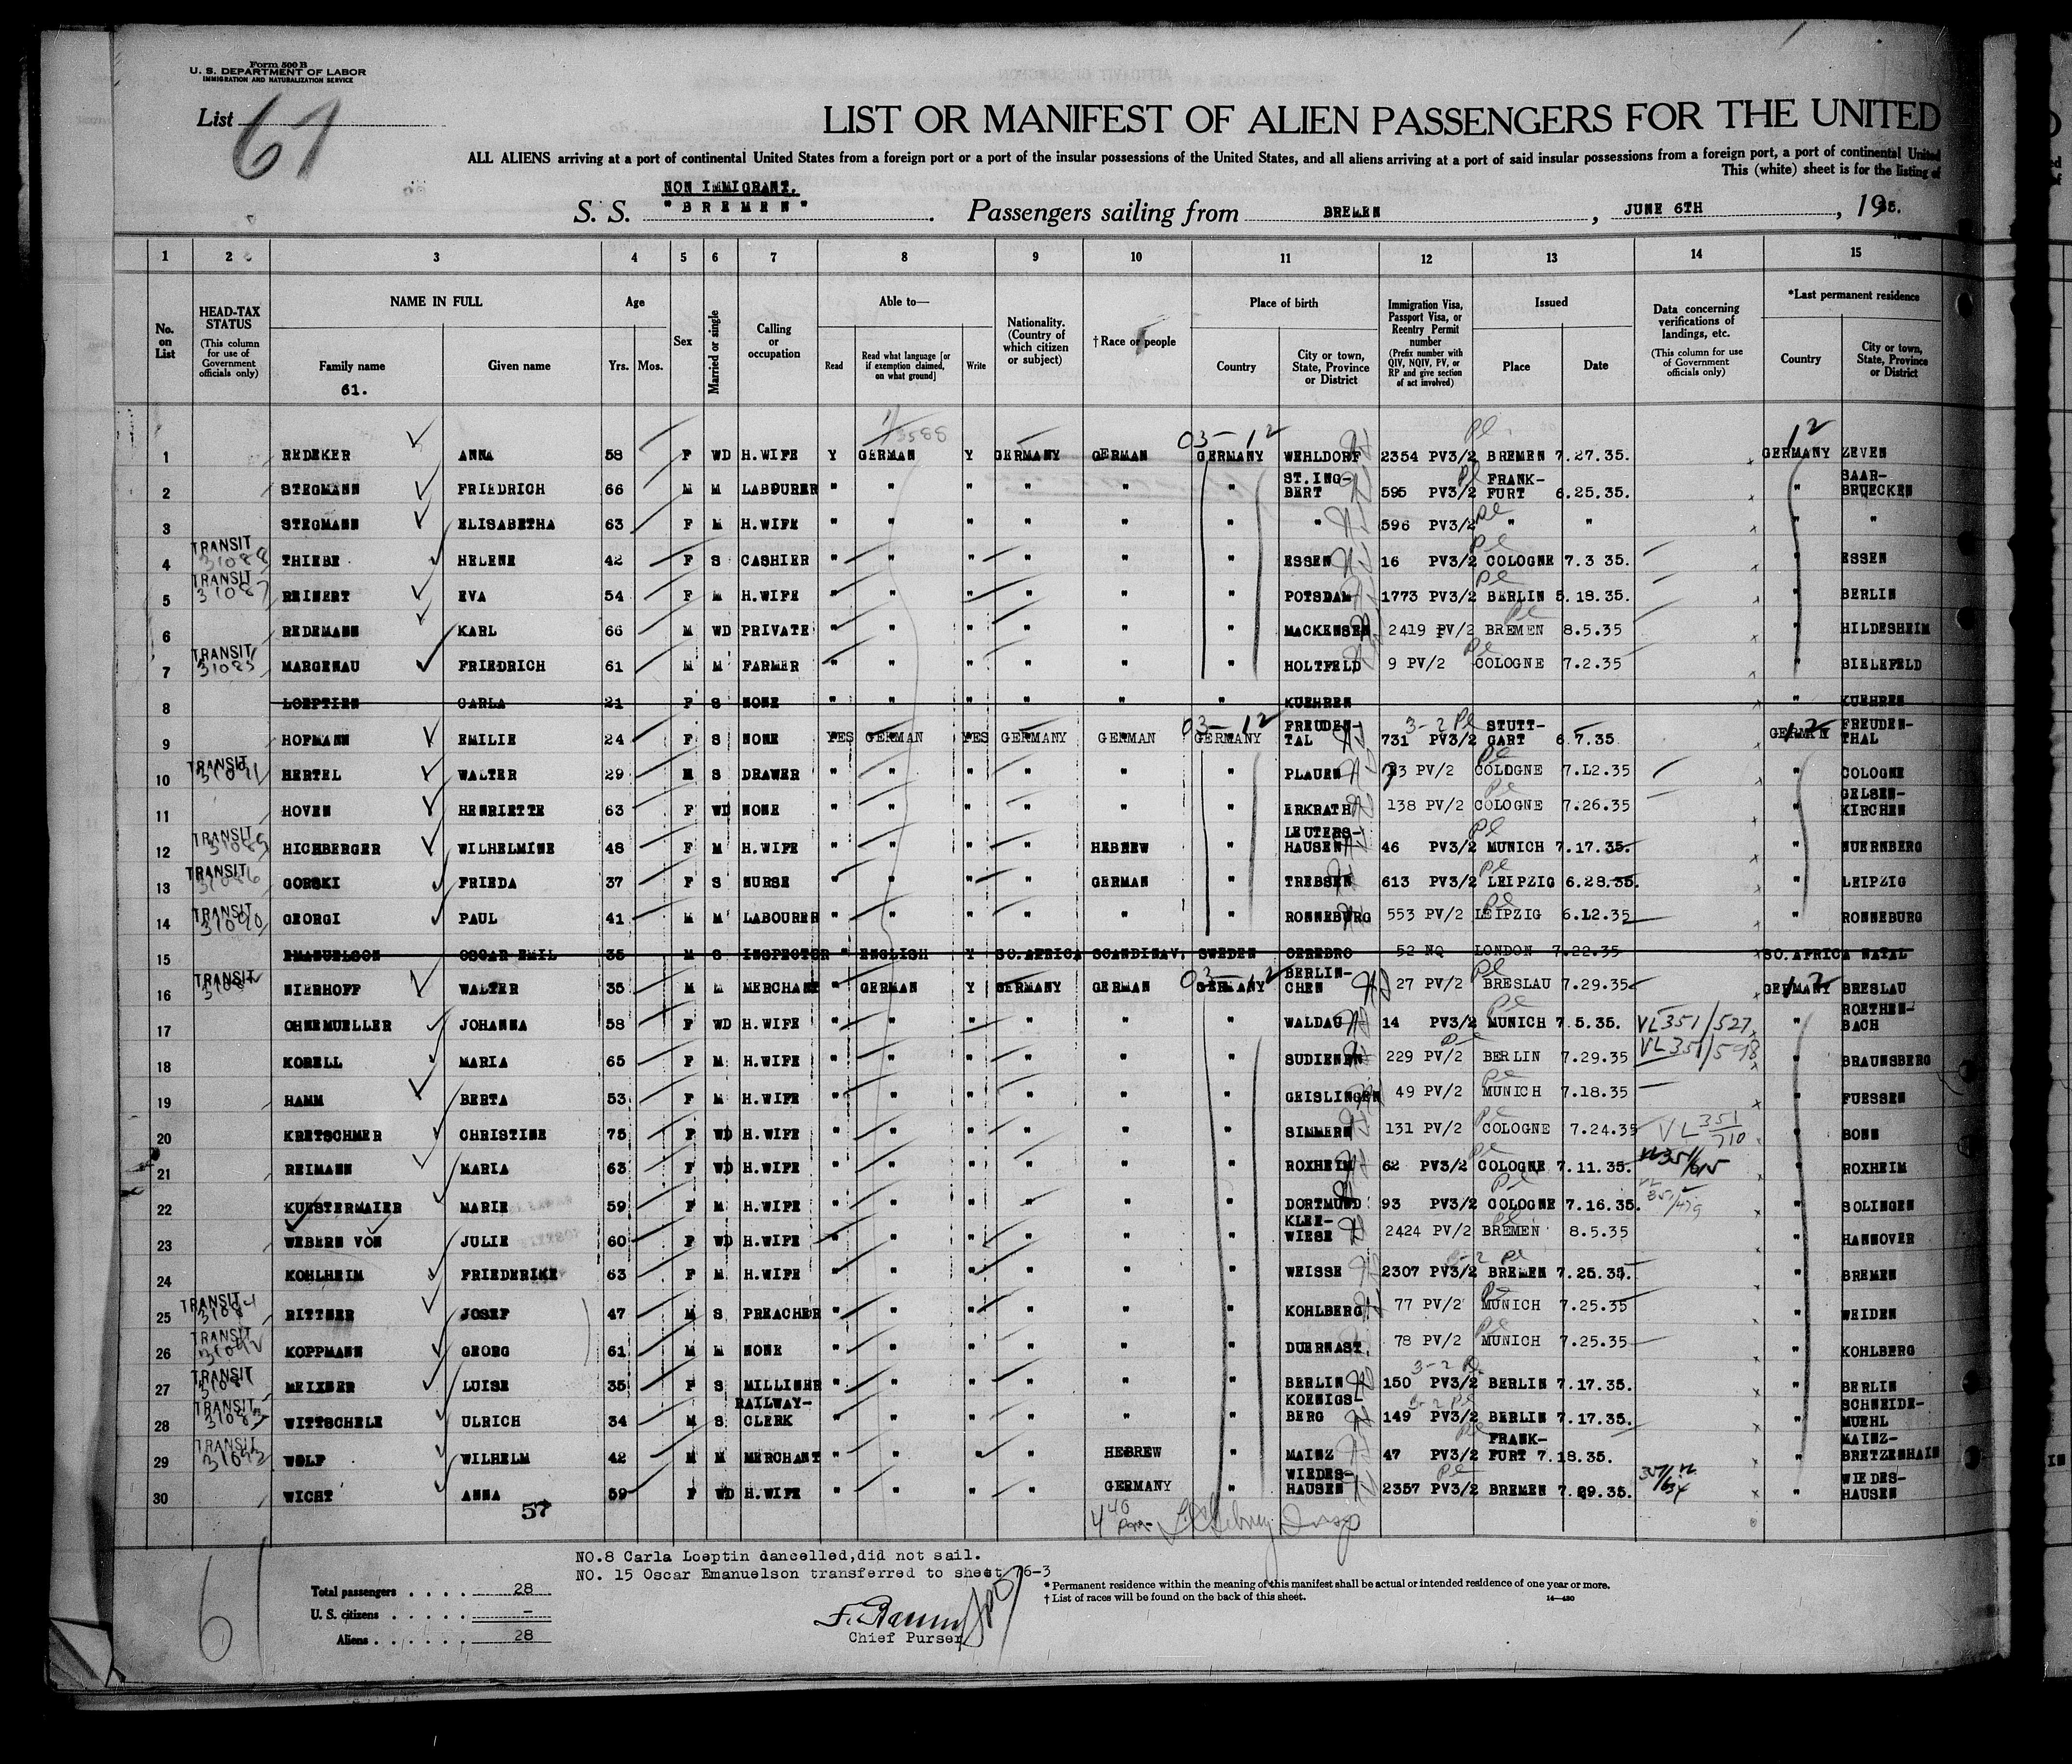 Form 500 B
U. S. DEPARTMENT OF LABOR
IMMIGRATION AND NATURALIZATION SERVICE
List 61
LIST OR MANIFEST OF ALIEN PASSENGERS FOR THE UNITED
ALL ALIENS arriving at a port of continental United States from a foreign port or a port of the insular possessions of the United States, and all aliens arriving at a port of said insular possessions from a foreign port, a port of continental United
This (white) sheet is for the listing of
NON IMMIGRANT.
S. S. "BREMEN". Passengers sailing from BREMEN, JUNE 6TH, 1935.
1 2 3 4 5 6 7 8 9 10 11 12 13 14 15
No. on List
HEAD-TAX STATUS (This column for use of Government officials only)
NAME IN FULL Family name Given name
61.
Age Yrs. Mos.
Sex
Married or single
Calling or occupation
Able to— Read Read what language [or if exemption claimed, on what ground] Write
Nationality. (Country of which citizen or subject)
†Race or people
Place of birth Country City or town, State, Province or District
Immigration Visa, Passport Visa, or Reentry Permit number (Prefix number with QIV, NQIV, PV, or RP and give section of act involved)
Issued Place Date
Data concerning verifications of landings, etc. (This column for use of Government officials only)
*Last permanent residence Country City or town, State, Province or District
03-12 12
1 REDEKER ANNA 58 F WD H.WIFE Y GERMAN Y GERMANY GERMAN GERMANY WEHLDORF 2354 PV3/2 BREMEN 7.27.35. GERMANY ZEVEN
2 STEGMANN FRIEDRICH 66 M M LABOURER " " " " " " ST.ING-BERT 595 PV3/2 FRANK-FURT 6.25.35. " SAAR-BRUECKEN
3 STEGMANN ELISABETHA 63 F M H.WIFE " " " " " " " 596 PV3/2 " " " "
4 TRANSIT THIEBE HELENE 42 F S CASHIER " " " " " " ESSEN 16 PV3/2 COLOGNE 7.3 35. " ESSEN
5 TRANSIT 31087 REINERT EVA 54 F M H.WIFE " " " " " " POTSDAM 1773 PV3/2 BERLIN 5.18.35. " BERLIN
6 REDEMANN KARL 66 M WD PRIVATE " " " " " " MACKENSEN 2419 PV/2 BREMEN 8.5.35 " HILDESHEIM
7 TRANSIT 31085 MARGENAU FRIEDRICH 61 M M FARMER " " " " " " HOLTFELD 9 PV/2 COLOGNE 7.2.35 " BIELEFELD
8 LOEPTIEN CARLA 21 F S NONE " " " " " " KUEHREN " KUEHREN
03-12 12
9 HOFMANN EMILIE 24 F S NONE YES GERMAN YES GERMANY GERMAN GERMANY FREUDEN-TAL 731 PV3/2 STUTT-GART 6.7.35 GERMANY FREUDEN-THAL
10 TRANSIT 31091 HERTEL WALTER 29 M S DRAWER " " " " " " PLAUEN 73 PV/2 COLOGNE 7.12.35 " COLOGNE
11 HOVEN HENRIETTE 63 F WD NONE " " " " " " ERKRATH 138 PV/2 COLOGNE 7.26.35 " GELSEN-KIRCHEN
12 TRANSIT HICHBERGER WILHELMINE 48 F M H.WIFE " " " " HEBREW " LEUTERS-HAUSEN 46 PV3/2 MUNICH 7.17.35. " NUERNBERG
13 TRANSIT 31086 GORSKI FRIEDA 37 F S NURSE " " " " GERMAN " TREBSEN 613 PV3/2 LEIPZIG 6.28.35. " LEIPZIG
14 TRANSIT 31090 GEORGI PAUL 41 M M LABOURER " " " " " " RONNEBURG 553 PV/2 LEIPZIG 6.12.35 " RONNEBURG
15 EMANUELSON OSCAR EMIL 35 M S INSPECTOR " ENGLISH Y SO.AFRICA SCANDINAV. SWEDEN OEREBRO 52 NQ LONDON 7.22.35 SO.AFRICA NATAL
03-12 12
16 TRANSIT NIERHOFF WALTER 35 M M MERCHANT " GERMAN Y GERMANY GERMAN GERMANY BERLIN-CHEN 27 PV/2 BRESLAU 7.29.35 GERMANY BRESLAU
17 OHNEMUELLER JOHANNA 58 F WD H.WIFE " " " " " " WALDAU 14 PV3/2 MUNICH 7.5.35. VL351/527 " ROETHEN-BACH
18 KORELL MARIA 65 F M H.WIFE " " " " " " SUDIENEN 229 PV/2 BERLIN 7.29.35 VL351/598 " BRAUNSBERG
19 HAMM BERTA 53 F M H.WIFE " " " " " " GEISLINGEN 49 PV/2 MUNICH 7.18.35 " FUESSEN
20 KRETSCHMER CHRISTINE 75 F WD H.WIFE " " " " " " SIMMERN 131 PV/2 COLOGNE 7.24.35 VL 351/710 " BONN
21 REIMANN MARIA 63 F WD H.WIFE " " " " " " ROXHEIM 62 PV3/2 COLOGNE 7.11.35. VL351/615 " ROXHEIM
22 KUESTERMAIER MARIE 59 F M H.WIFE " " " " " " DORTMUND 93 PV3/2 COLOGNE 7.16.35. " SOLINGEN
23 WEBERN VON JULIE 60 F WD H.WIFE " " " " " " KLEE-WIESE 2424 PV/2 BREMEN 8.5.35 " HANNOVER
24 KOHLHEIM FRIEDERIKE 63 F M H.WIFE " " " " " " WEISSE 2307 PV3/2 BREMEN 7.25.35. " BREMEN
25 TRANSIT 31084 RITTNER JOSEF 47 M S PREACHER " " " " " " KOHLBERG 77 PV/2 MUNICH 7.25.35 " WEIDEN
26 TRANSIT 31092 KOPPMANN GEORG 61 M M NONE " " " " " " DUERNAST. 78 PV/2 MUNICH 7.25.35 " KOHLBERG
27 TRANSIT MEIXNER LUISE 35 F S MILLINER " " " " " " BERLIN 150 PV3/2 BERLIN 7.17.35. " BERLIN
28 TRANSIT WITTSCHELE ULRICH 34 M S RAILWAY-CLERK " " " " " " KOENIGS-BERG 149 PV3/2 BERLIN 7.17.35. " SCHNEIDE-MUEHL
29 TRANSIT 31093 WOLF WILHELM 42 M M MERCHANT " " " " HEBREW " MAINZ 47 PV3/2 FRANK-FURT 7.18.35. " MAINZ-BRETZENHAIN
30 WICHT ANNA 59 F WD H.WIFE " " " " GERMANY " WIEDES-HAUSEN 2357 PV3/2 BREMEN 7.29.35. " WIEDES-HAUSEN
57
NO.8 Carla Loeptin dancelled,did not sail.
NO. 15 Oscar Emanuelson transferred to sheet 76-3
Total passengers . . . . 28
U. S. citizens . . . . . –
Aliens . . . . . . 28
Chief Purser
* Permanent residence within the meaning of this manifest shall be actual or intended residence of one year or more.
† List of races will be found on the back of this sheet.
14—430
61